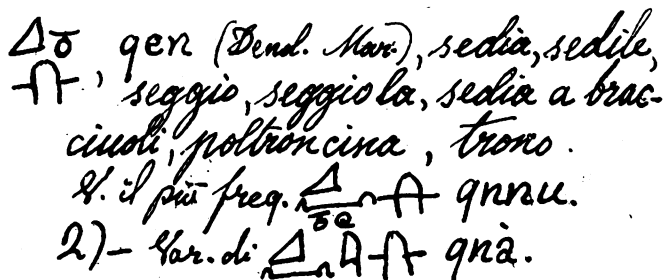 qen (Dend. Mar.), sedia, sedile,
seggio, seggiola, sedia a brac-
ciuoli, poltroncina, trono.
V. il più freq. qnnu.
2)- Var. di qnà.